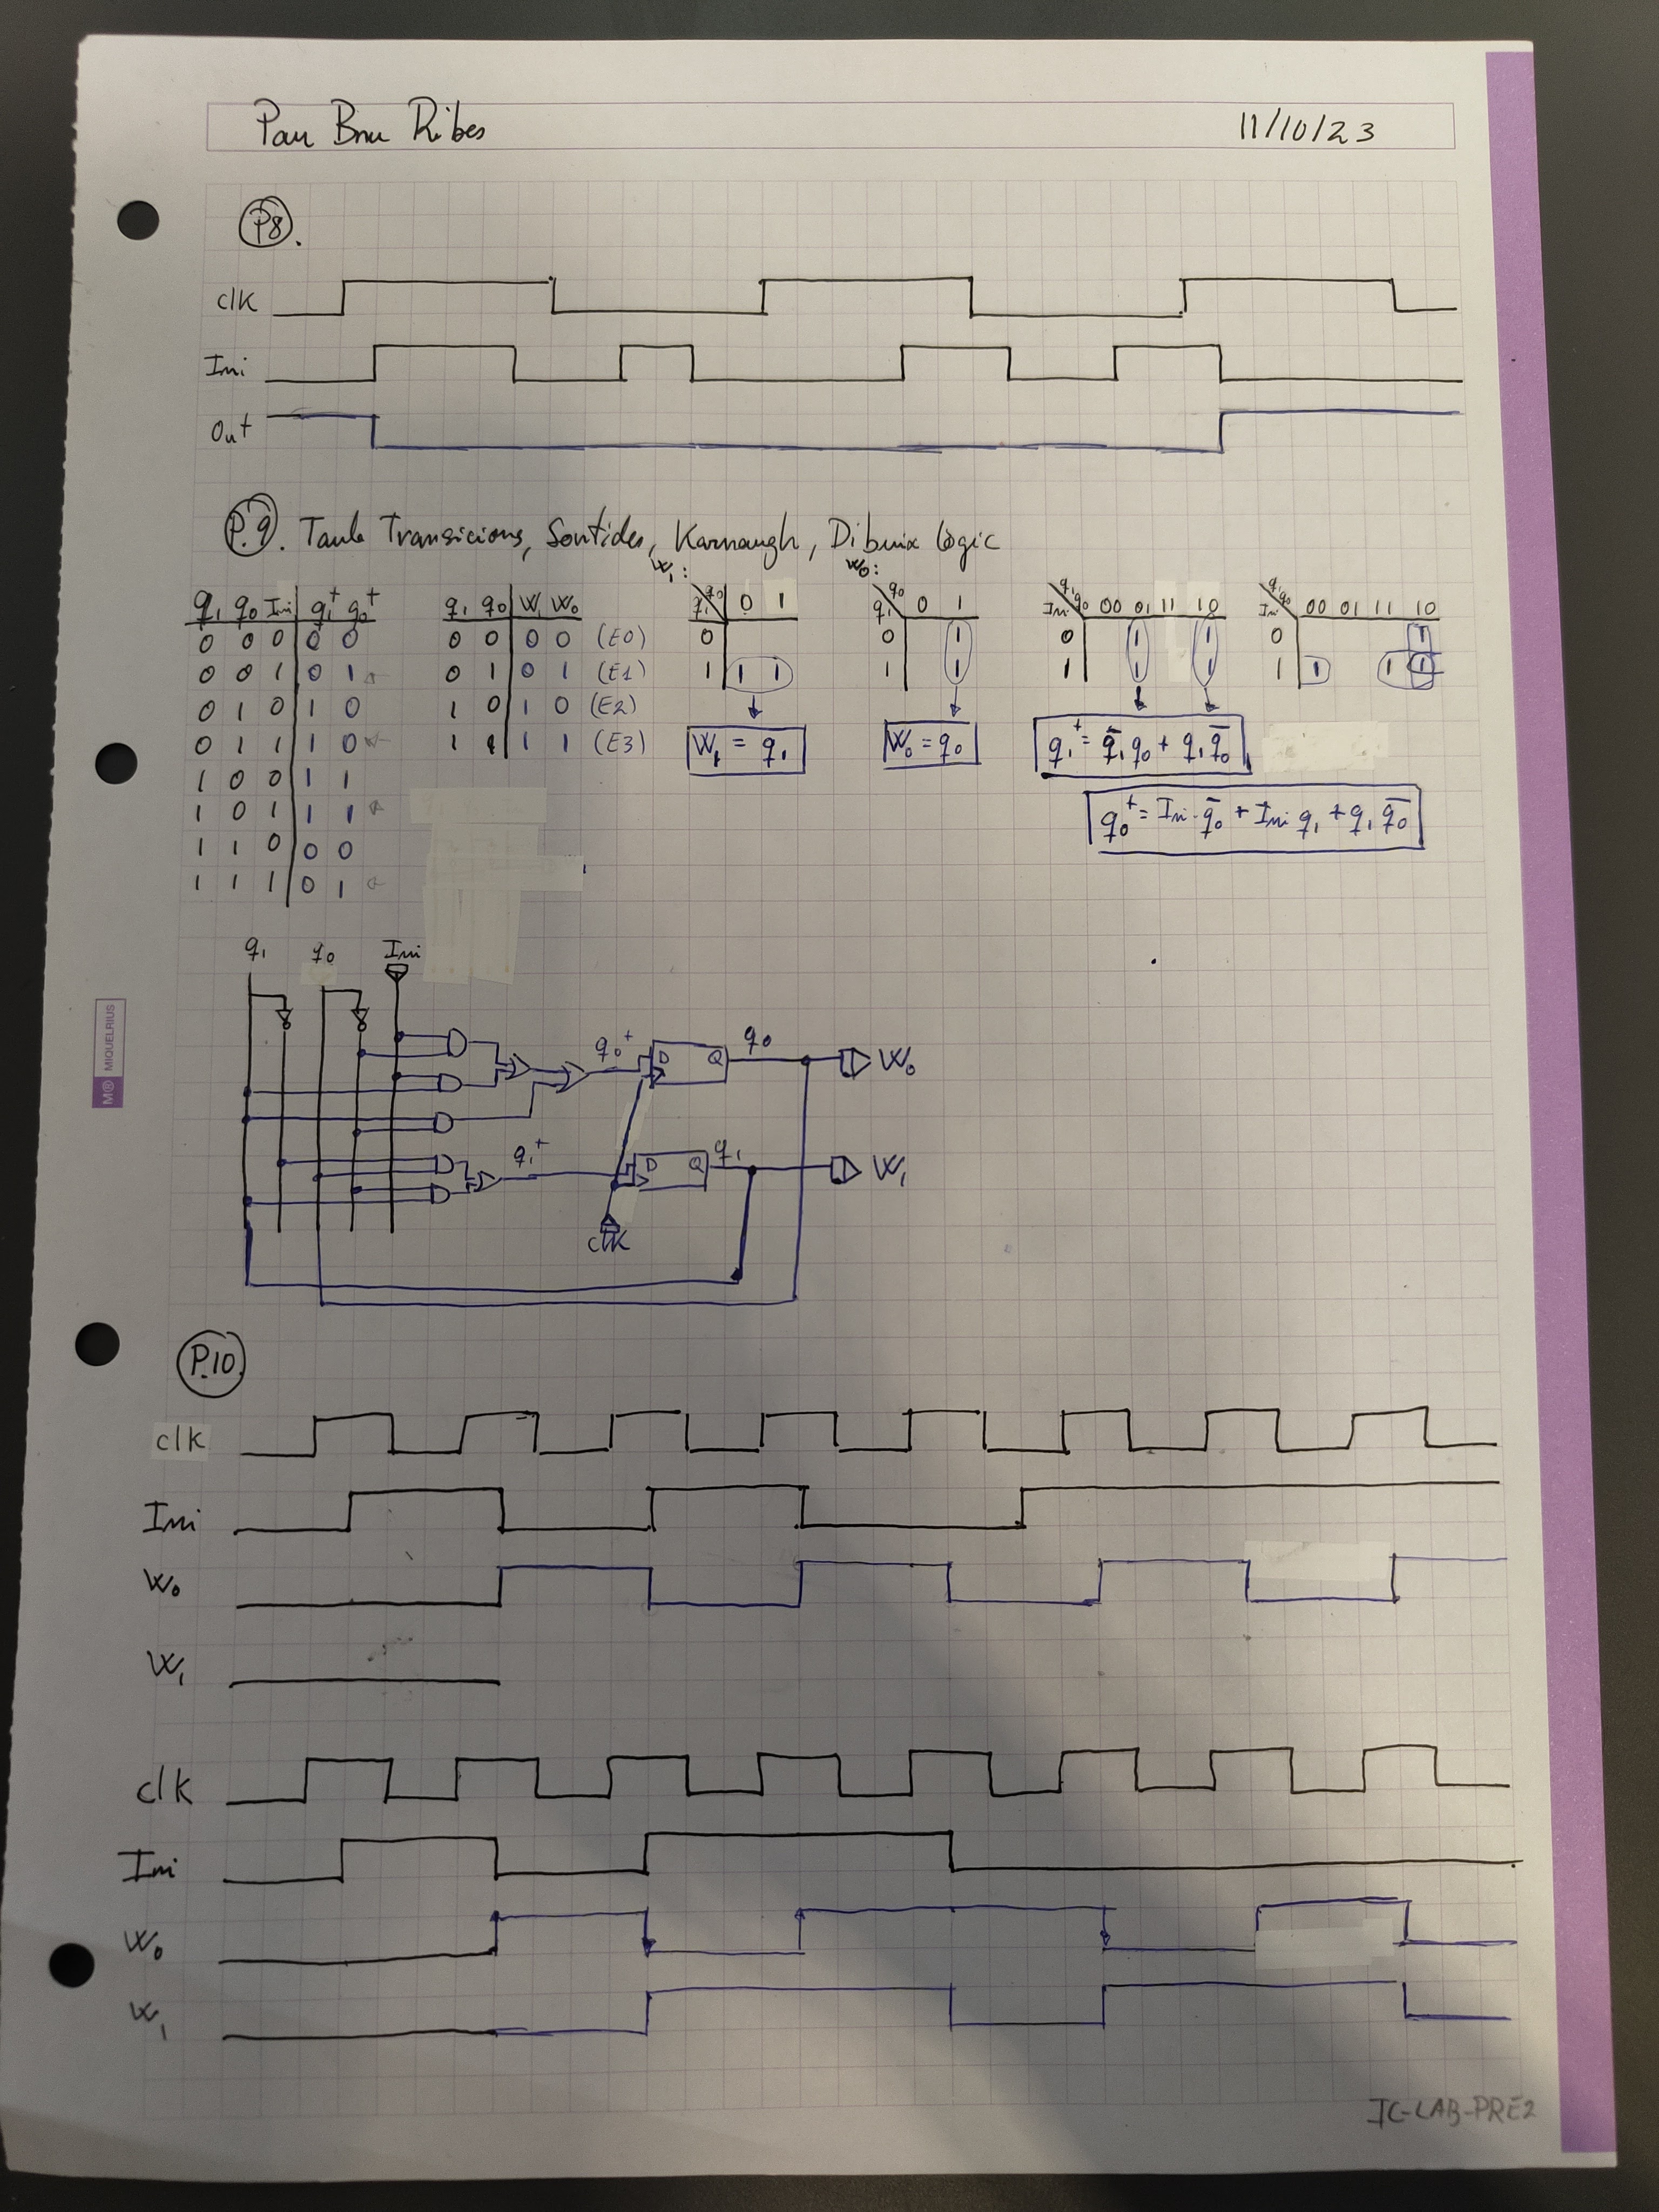 Pau Bru Ribes 11/10/23
P8.
clk
Ini
Out
P.9. Taula Transicions, Sortides, Karnaugh, Dibuix lògic
q₁ q₀ Ini q₁⁺ q₀⁺
0 0 0 0 0
0 0 1 0 1
0 1 0 1 0
0 1 1 1 0
1 0 0 1 1
1 0 1 1 1
1 1 0 0 0
1 1 1 0 1
q₁ q₀ W₁ W₀
0 0 0 0 (E0)
0 1 0 1 (E1)
1 0 1 0 (E2)
1 1 1 1 (E3)
W₁:
q₁ q₀ 0 1
0
1 1 1
W₁ = q₁
W₀:
q₁ q₀ 0 1
0 1
1 1
W₀ = q₀
Ini q₁q₀ 00 01 11 10
0 1 1
1 1 1
q₁⁺ = q̄₁q₀ + q₁q̄₀
Ini q₁q₀ 00 01 11 10
0 1
1 1 1 1
q₀⁺ = Ini·q̄₀ + Ini q₁ + q₁q̄₀
q₁ q₀ Ini
q₀⁺ D Q q₀ W₀
q₁⁺ D Q q₁ W₁
clk
P.10.
clk
Ini
W₀
W₁
clk
Ini
W₀
W₁
IC-LAB-PRE2
M® MIQUELRIUS